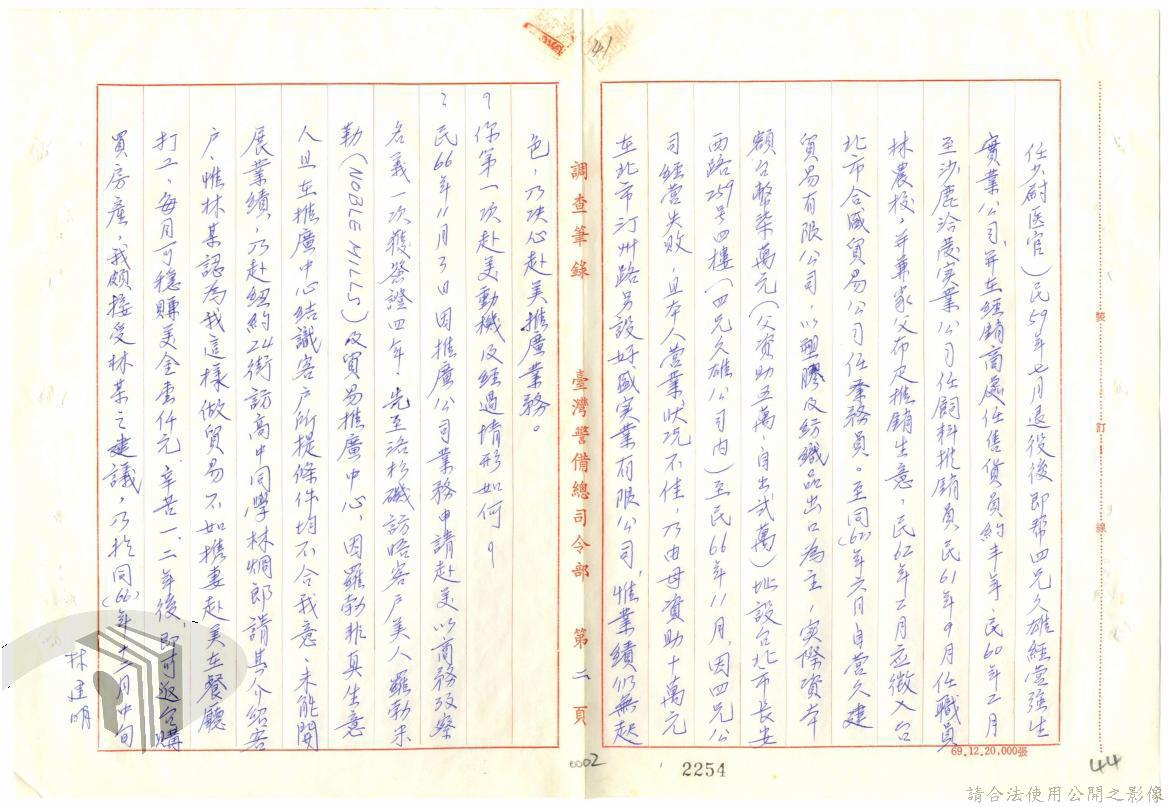 41
任少尉医官）民59年七月退役後即帮四兄久雄經營強生
實業公司，并在經銷商處任售貨員約半年，民60年二月
至沙鹿洽農实業公司任飼料推銷員民61年9月任職員
林農校，并兼家父布疋推銷生意，民62年2月应徵入台
北市合盛貿易公司任業務員。至同(62)年六月自营久建
貿易有限公司，以塑膠及紡織品出口為主，实際資本
額台幣柒萬元（父資助五萬，自出弍萬）址設台北市長安
西路259号四樓（四兄久雄公司內）至民66年11月，因四兄公
司經营失敗，且本人营業狀況不佳，乃由母資助十萬元
在北市汀州路另設好盛実業有限公司，惟業績仍無起
調查筆錄　臺灣警備總司令部　第二頁
色，乃决心赴美推廣業務。
？你第一次赴美動機及經過情形如何？
：民66年11月3日因推廣公司業務申請赴美以商務攷察
名義一次獲簽證四年，先至洛杉磯訪晤客戶美人羅勃米
勒（NOBLE MILLS）及貿易推廣中心，因羅勃非真生意
人且在推廣中心結識客户所提條件均不合我意，未能開
展業績，乃赴紐約24街訪高中同學林炯郎請其介紹客
户，惟林某認為我這樣做貿易不如携妻赴美在餐廳
打工，每月可穩賺美金壹仟元，辛苦一、二年後，即可返台購
買房産，我頗接受林某之建議，乃於同(66)年十一月中旬
林建明
69.12.20,000張
裝訂線
0002
2254
44
請合法使用公開之影像